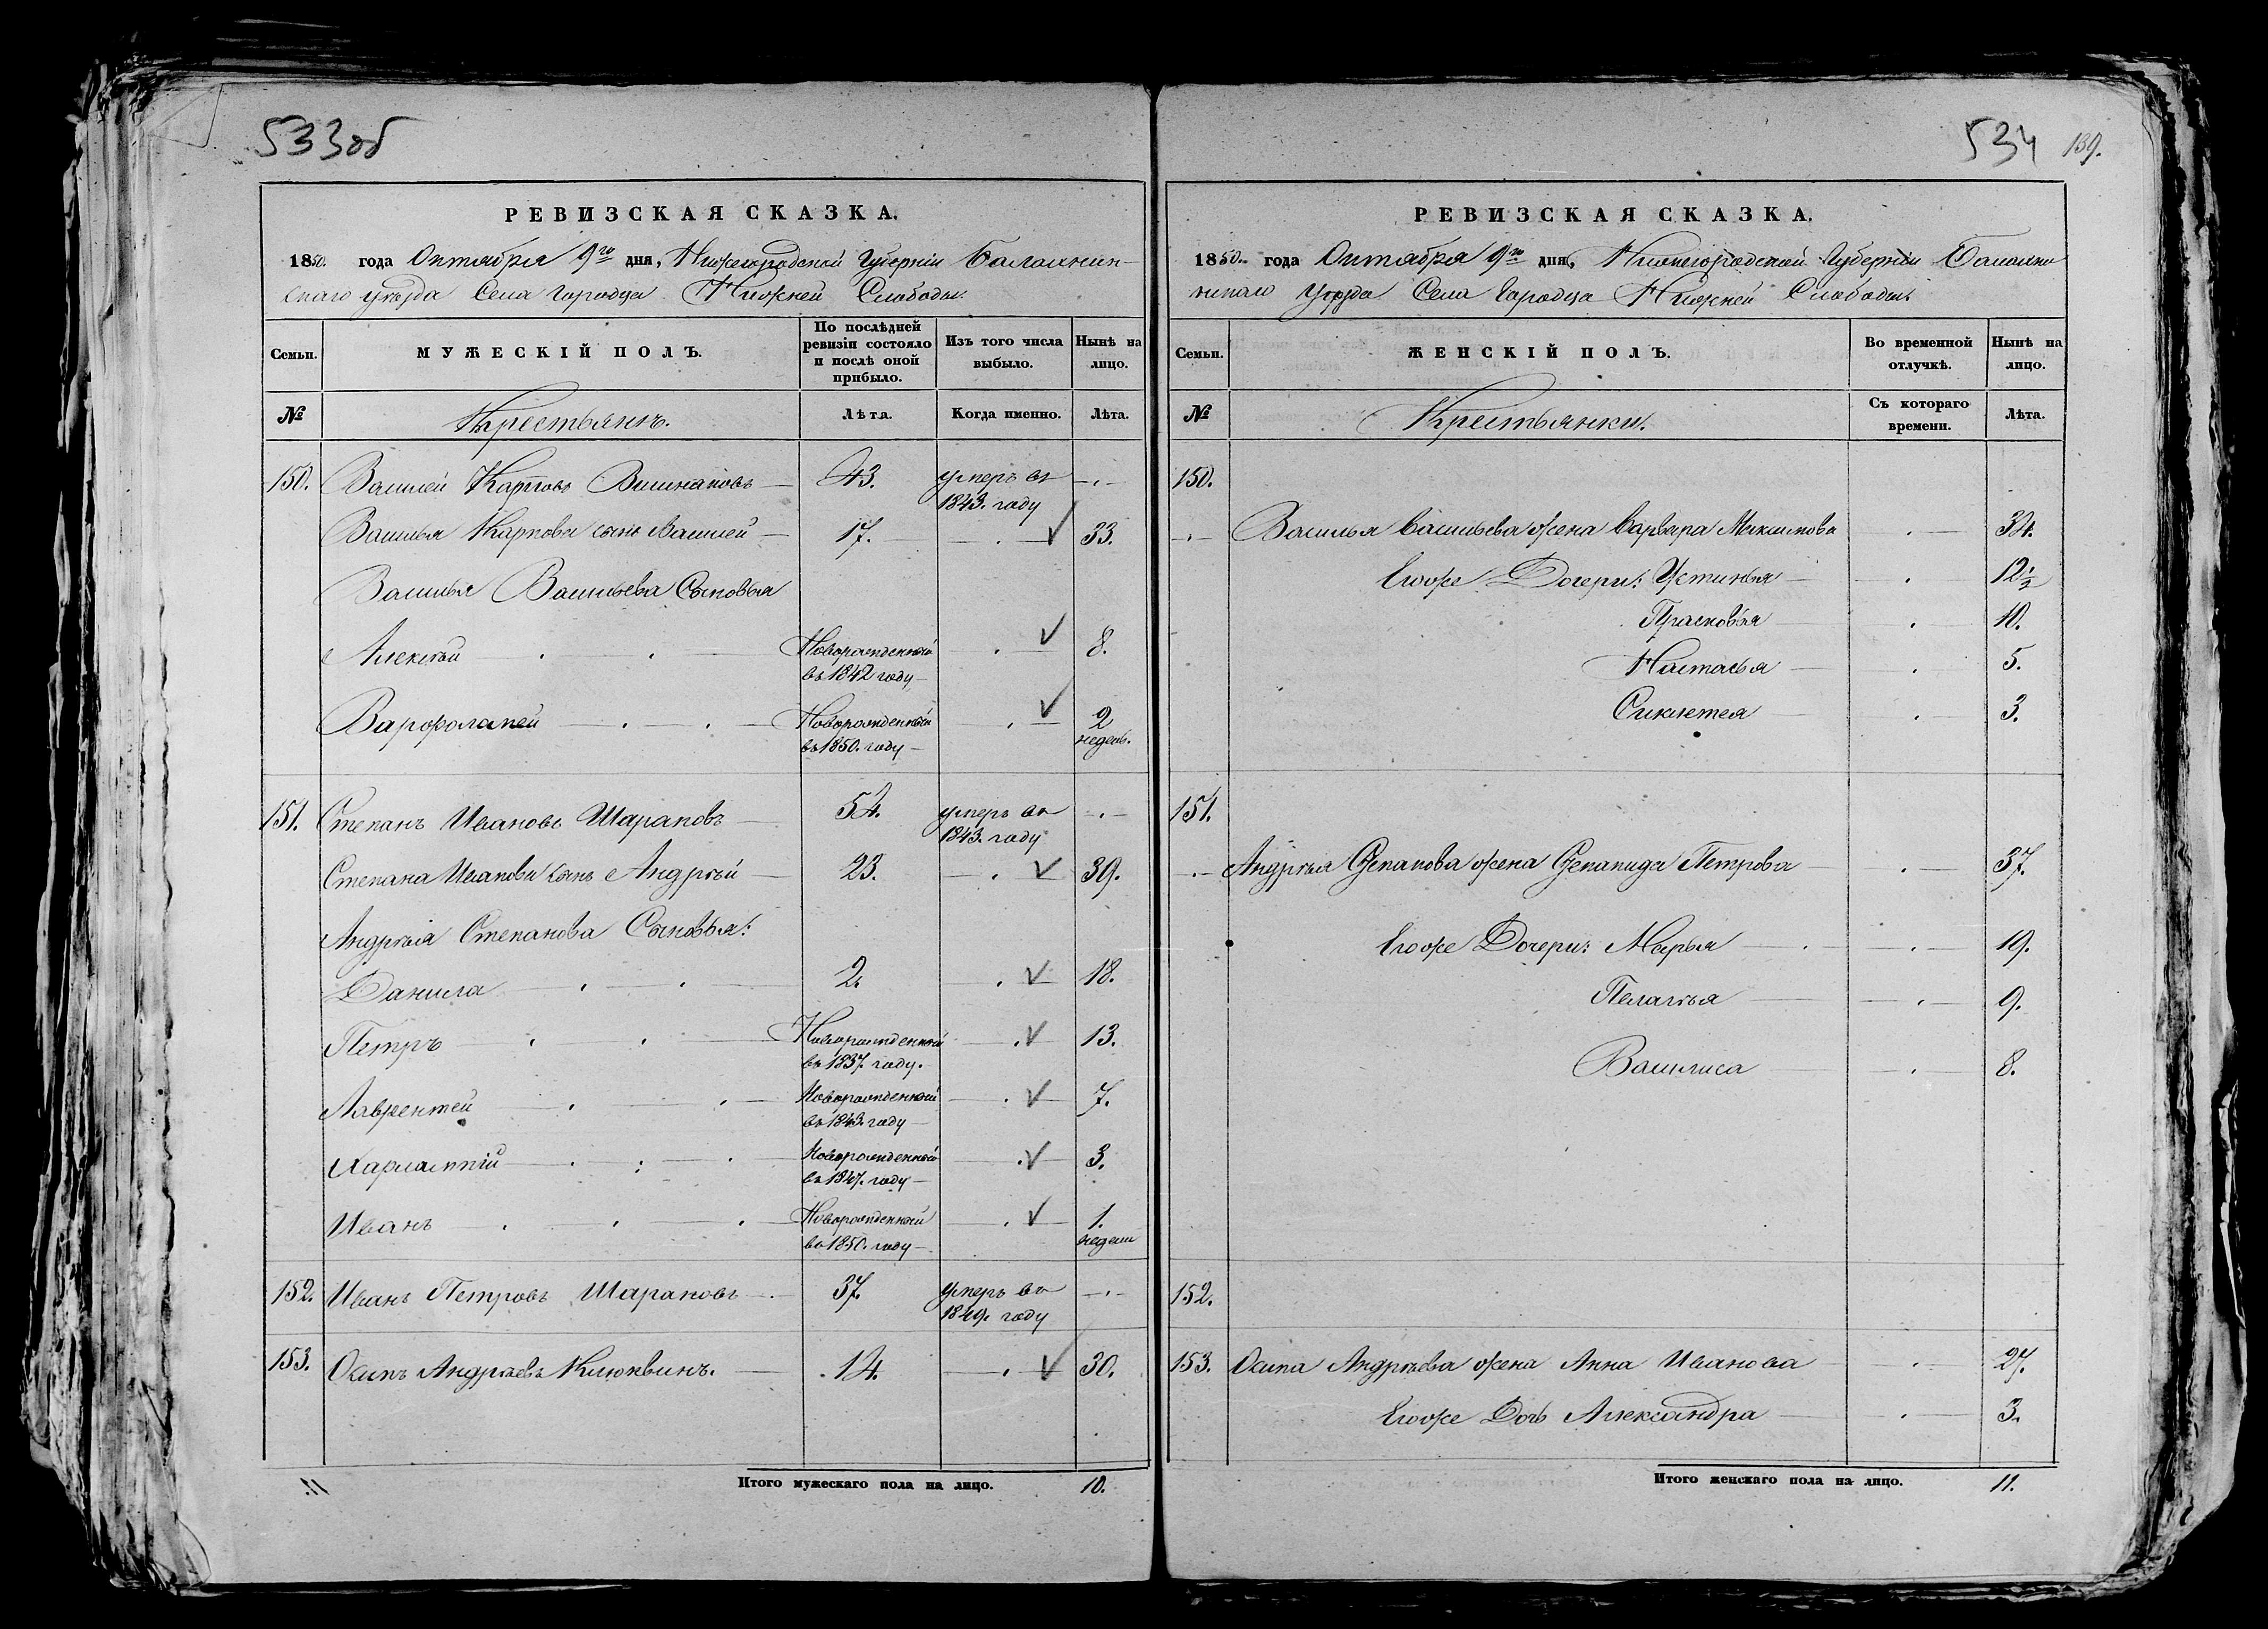 533об
РЕВИЗСКАЯ СКАЗКА.
1850. года Октября 9го дня, Нижегородской Губерніи Балахнин-
скаго уѣзда Села Городца Нижней Слободы.
Семьи.
МУЖЕСКІЙ ПОЛЪ.
По послѣдней ревизіи состояло и послѣ оной прибыло.
Изъ того числа выбыло.
Нынѣ на лицо.
№
Крестьянъ.
Лѣта.
Когда именно.
Лѣта.
150. Василей Карповъ 43. умеръ въ 1843. году
Василья Карпова сынъ Василей 17. 33.
Василья Васильева Сыновья
Алексѣй Новорожденный въ 1842 году 8.
Варфоламей Новорожденный въ 1850. году 2 недель.
151. Степанъ Ивановъ Шараповъ 54. умеръ въ 1843. году
Степана Иванова сынъ Андрѣй 23. 39.
Андрѣя Степанова Сыновья:
Данила 2. 18.
Петръ Новорожденный въ 1837. году. 13.
Лаврентей Новорожденный въ 1843 году 7.
Харлампій Новорожденный въ 1847. году 3.
Иванъ Новорожденный въ 1850. году 1. недели
152. Иванъ Петровъ Шараповъ 37. умеръ въ 1849. году
153. Осипъ Андрѣевъ Клюквинъ. 14. 30.
Итого мужескаго пола на лицо. 10.
534 139.
РЕВИЗСКАЯ СКАЗКА.
1850. года Октября 9го дня, Нижегородской Губерніи Балахни
нскаго Уѣзда Села Городца Нижней Слободы.
Семьи.
ЖЕНСКІЙ ПОЛЪ.
Во временной отлучкѣ.
Нынѣ на лицо.
№
Крестьянки.
Съ котораго времени.
Лѣта.
150.
Василья Васильева жена Варвара Максимова 34.
Егоже Дочери: Устинья 12½
Прасковья 10.
Настасья 5.
Сиклетея 3.
151.
Андрѣя Степанова жена Степанида Петрова 37.
Егоже Дочери: Марья 19.
Пелагѣя 9.
Василиса 8.
152.
153. Осипа Андрѣева жена Анна Иванова 27.
Егоже Дочь Александра 3.
Итого женскаго пола на лицо. 11.